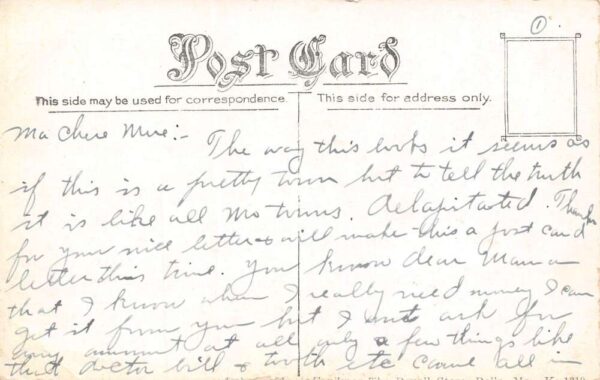 ①
Post Card
This side may be used for correspondence
This side for address only.
Ma Chere Mere:-
The way this looks it seems as
if this is a pretty town but to tell the truth
it is like all Mo towns. Delapitated. Thanks
for your nice letter & will make this a post card
letter this time. You know dear Mama
that I know when I really need money I can
get it from you but I not ask for
any amount at all only a few things like
that doctor bill & tooth etc came all in